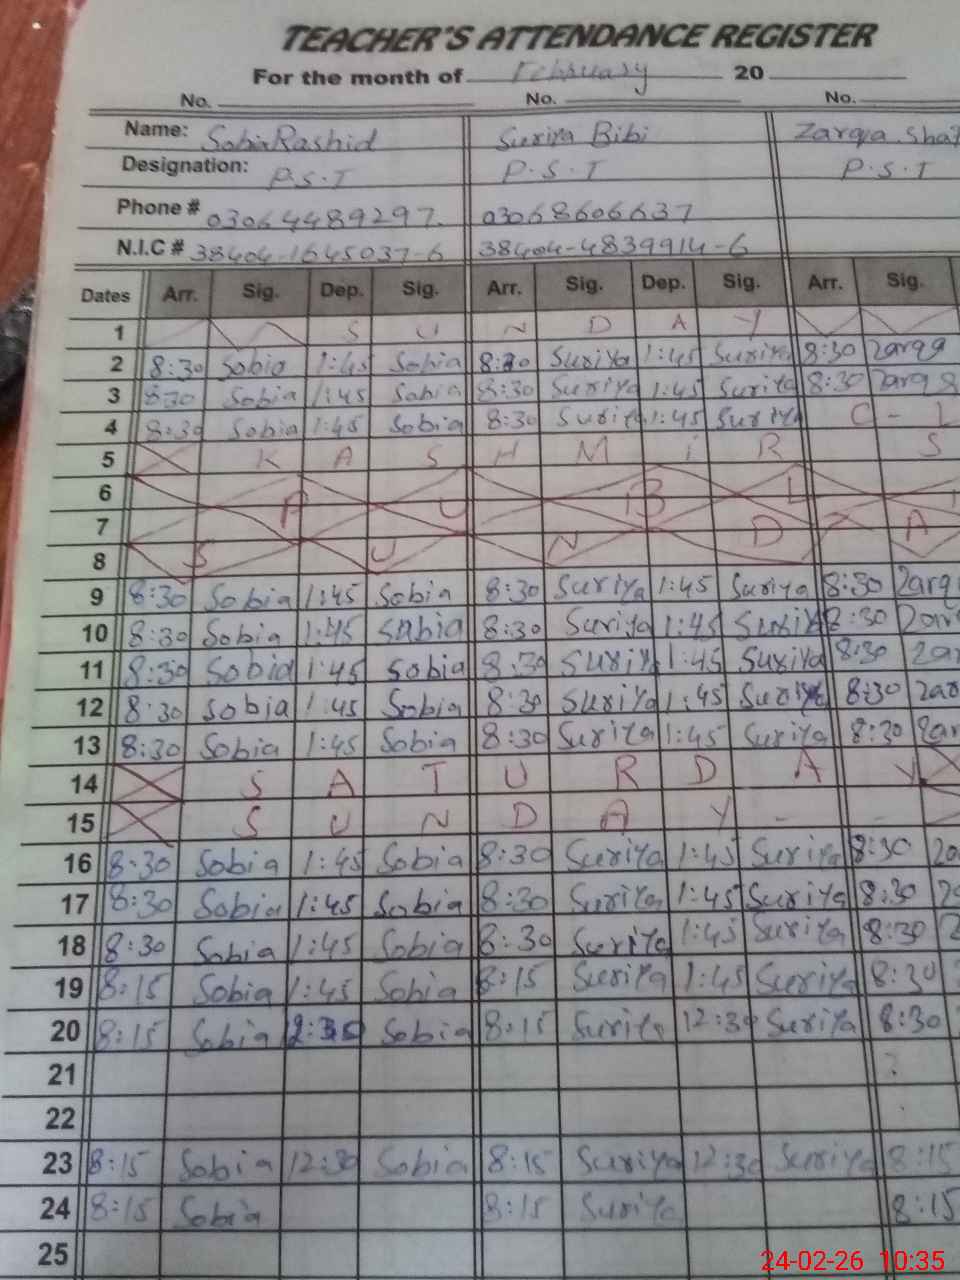 TEACHER'S ATTENDANCE REGISTER
For the month of February 20
No. No. No.
Name: Sobia Rashid Suriya Bibi Zarqa Sha
Designation: P.S.T P.S.T P.S.T
Phone # 03064489297 03068606637
N.I.C # 38404-1645037-6 38404-4839914-6
Dates Arr. Sig. Dep. Sig. Arr. Sig. Dep. Sig. Arr. Sig.
1 S U N D A Y
2 8:30 Sobia 1:45 Sobia 8:30 Suriya 1:45 Suriya 8:30 Zarqa
3 8:30 Sobia 1:45 Sobia 8:30 Suriya 1:45 Suriya 8:30 Zarqa
4 8:30 Sobia 1:45 Sobia 8:30 Suriya 1:45 Suriya C - L
5 K A S H M i R S
6 P U B L
7 D A
8 S U N
9 8:30 Sobia 1:45 Sobia 8:30 Suriya 1:45 Suriya 8:30 Zarq
10 8:30 Sobia 1:45 Sobia 8:30 Suriya 1:45 Suriya 8:30 Zar
11 8:30 Sobia 1:45 Sobia 8:30 Suriya 1:45 Suriya 8:30 Zar
12 8:30 Sobia 1:45 Sobia 8:30 Suriya 1:45 Suriya 8:30 Zar
13 8:30 Sobia 1:45 Sobia 8:30 Suriya 1:45 Suriya 8:30 Zar
14 S A T U R D A Y
15 S U N D A Y - -
16 8:30 Sobia 1:45 Sobia 8:30 Suriya 1:45 Suriya 8:30 Za
17 8:30 Sobia 1:45 Sobia 8:30 Suriya 1:45 Suriya 8:30 Za
18 8:30 Sobia 1:45 Sobia 8:30 Suriya 1:45 Suriya 8:30 Z
19 8:15 Sobia 1:45 Sobia 8:15 Suriya 1:45 Suriya 8:30
20 8:15 Sobia 12:30 Sobia 8:15 Suriya 12:30 Suriya 8:30
21
22
23 8:15 Sobia 12:30 Sobia 8:15 Suriya 12:30 Suriya 8:15
24 8:15 Sobia 8:15 Suriya 8:15
25
24-02-26 10:35